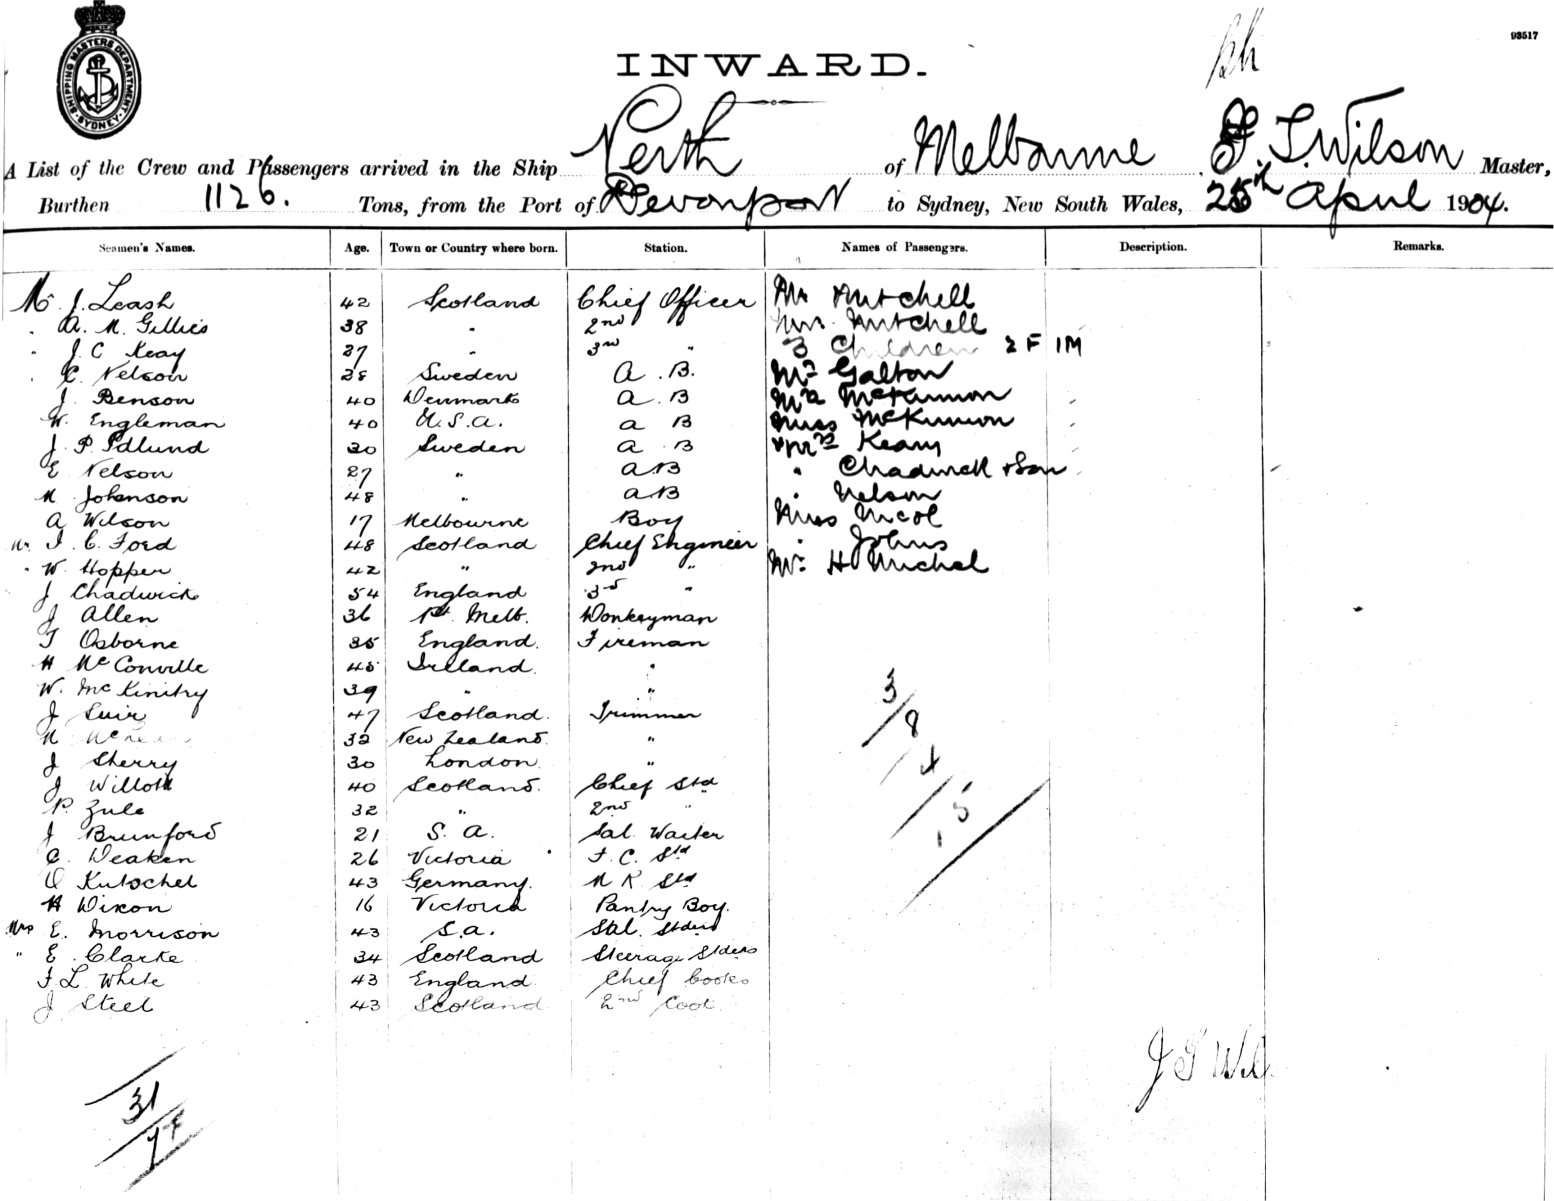 SHIPPING MASTERS DEPARTMENT
SYDNEY
93517
INWARD.
A List of the Crew and Passengers arrived in the Ship Perth of Melbourne J. S. Wilson Master,
Burthen 1126. Tons, from the Port of Devonport to Sydney, New South Wales, 25th April 1904.
Seamen's Names. Age. Town or Country where born. Station. Names of Passengers. Description. Remarks.
Mr J. Leash 42 Scotland Chief Officer Mr Mitchell
" A. M. Gillies 38 " 2nd " Mrs Mitchell
" J. C Keay 27 " 3rd " 3 Children 2 F 1M
" C. Nelson 28 Sweden A. B. Mr Galton
J. Benson 40 Denmark A. B Mrs McKinnon
W. Engleman 40 U. S. A. A B Miss McKinnon
J. P. Idlund 30 Sweden A B Mrs Keam
E Nelson 27 " A B " Chadwick & Son
M Johenson 48 " A B " Nelson
A Wilson 17 Melbourne Boy Miss Nicol
Mr J. C. Ford 48 Scotland Chief Engineer " Johns
" W. Hopper 42 " 2nd " Mr H Michel
J Chadwick 54 England 3rd "
J Allen 36 Pt. Melb. Donkeyman
T Osborne 35 England. Fireman
H McConville 45 Ireland. "
W. McKinitry 39 " "
J Suir 47 Scotland. Trimmer
N 32 New Zealand. "
J Sherry 30 London. "
J Willott 40 Scotland. Chief Std
P. Zule 32 " 2nd "
J Brunford 21 S. A. Sal. Waiter
C. Deaken 26 Victoria F. C. Std
O Kutschel 43 Germany. M R Std
H Dixon 16 Victoria Pantry Boy.
Mrs E. Morrison 43 S. A. Sal. Stdess
" E. Clarke 34 Scotland Steerage Stdess
F L. White 43 England Chief Cook
J Steel 43 Scotland 2nd Cook
3/8/4/15
J S Wil
31